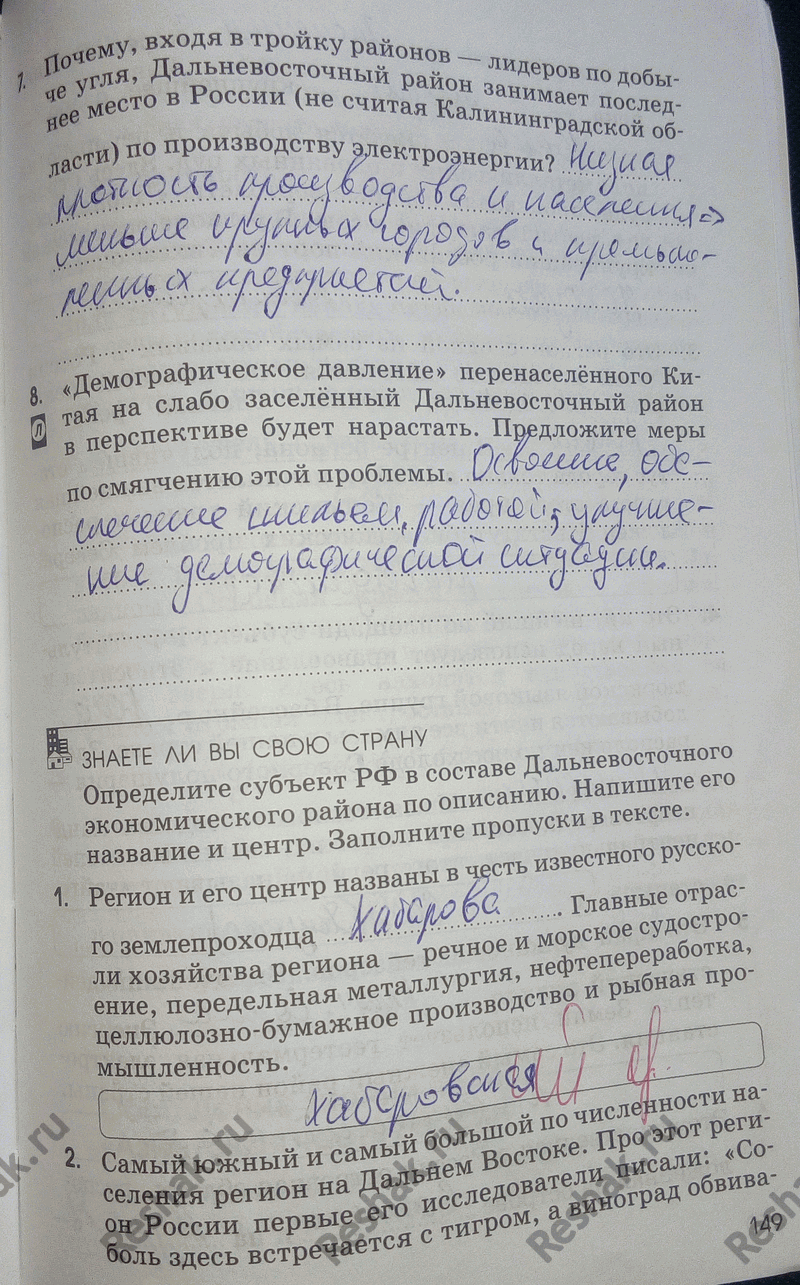 7. Почему, входя в тройку районов — лидеров по добы-
че угля, Дальневосточный район занимает послед-
нее место в России (не считая Калининградской об-
ласти) по производству электроэнергии? Низкая
плотность производства и населения =>
меньше крупных городов и промыш-
ленных предприятий.
8. «Демографическое давление» перенаселённого Ки-
Л тая на слабо заселённый Дальневосточный район
в перспективе будет нарастать. Предложите меры
по смягчению этой проблемы. Освоение, обе-
спечение жильем, работой, улучше-
ние демографической ситуации.
ЗНАЕТЕ ЛИ ВЫ СВОЮ СТРАНУ
Определите субъект РФ в составе Дальневосточного
экономического района по описанию. Напишите его
название и центр. Заполните пропуски в тексте.
1. Регион и его центр названы в честь известного русско-
го землепроходца Хабарова. Главные отрас-
ли хозяйства региона — речное и морское судостро-
ение, передельная металлургия, нефтепереработка,
целлюлозно-бумажное производство и рыбная про-
мышленность.
Хабаровский
2. Самый южный и самый большой по численности на-
селения регион на Дальнем Востоке. Про этот реги-
он России первые его исследователи писали: «Со-
боль здесь встречается с тигром, а виноград обвива-
149
Reshak.ru
Reshak.ru
Reshak.ru
Reshak.ru